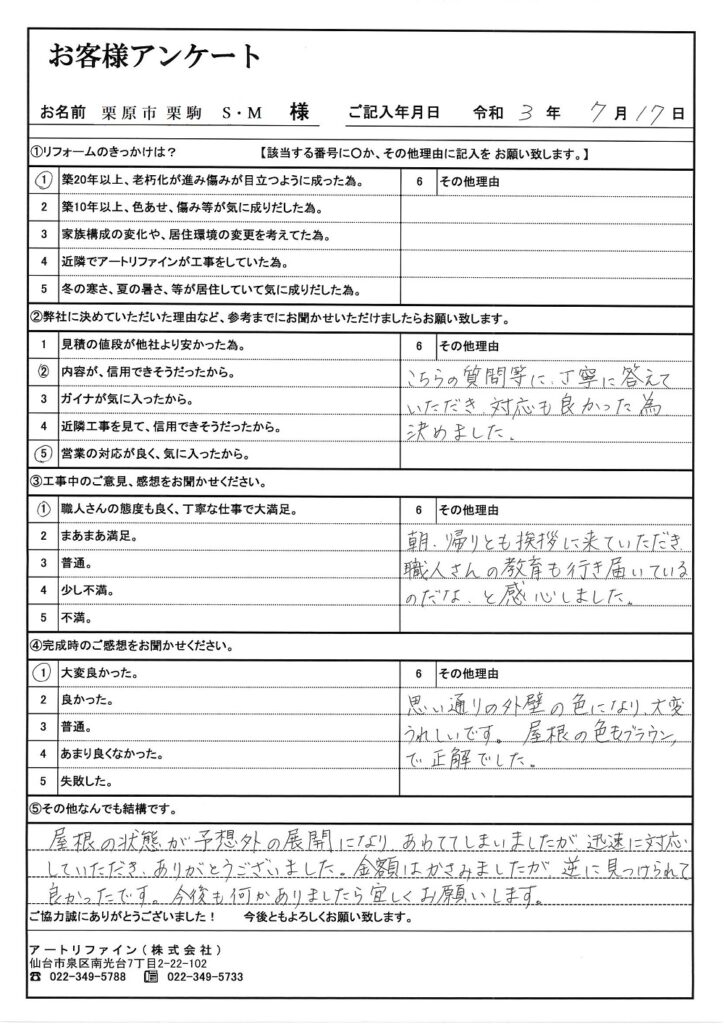 お客様アンケート
お名前 栗原市 栗駒 S・M 様 ご記入年月日 令和 3 年 7 月 17 日
①リフォームのきっかけは？ 【該当する番号に〇か、その他理由に記入を お願い致します。】
1 築20年以上、老朽化が進み傷みが目立つように成った為。 6 その他理由
2 築10年以上、色あせ、傷み等が気に成りだした為。
3 家族構成の変化や、居住環境の変更を考えてた為。
4 近隣でアートリファインが工事をしていた為。
5 冬の寒さ、夏の暑さ、等が居住していて気に成りだした為。
②弊社に決めていただいた理由など、参考までにお聞かせいただけましたらお願い致します。
1 見積の値段が他社より安かった為。 6 その他理由
2 内容が、信用できそうだったから。 こちらの質問等に、丁寧に答えて
3 ガイナが気に入ったから。 いただき、対応も良かった為
4 近隣工事を見て、信用できそうだったから。 決めました。
5 営業の対応が良く、気に入ったから。
③工事中のご意見、感想をお聞かせください。
1 職人さんの態度も良く、丁寧な仕事で大満足。 6 その他理由
2 まあまあ満足。 朝、帰りとも挨拶に来ていただき、
3 普通。 職人さんの教育も行き届いている
4 少し不満。 のだな、と感心しました。
5 不満。
④完成時のご感想をお聞かせください。
1 大変良かった。 6 その他理由
2 良かった。 思い通りの外壁の色になり、大変
3 普通。 うれしいです。 屋根の色もブラウン
4 あまり良くなかった。 で正解でした。
5 失敗した。
⑤その他なんでも結構です。
屋根の状態が予想外の展開になり、あわててしまいましたが、迅速に対応
していただき、ありがとうございました。金額はかさみましたが、逆に見つけられて
良かったです。今後も何かありましたら宜しくお願いします。
ご協力誠にありがとうございました！ 今後ともよろしくお願い致します。
アートリファイン(株式会社)
仙台市泉区南光台7丁目2-22-102
☎ 022-349-5788 022-349-5733